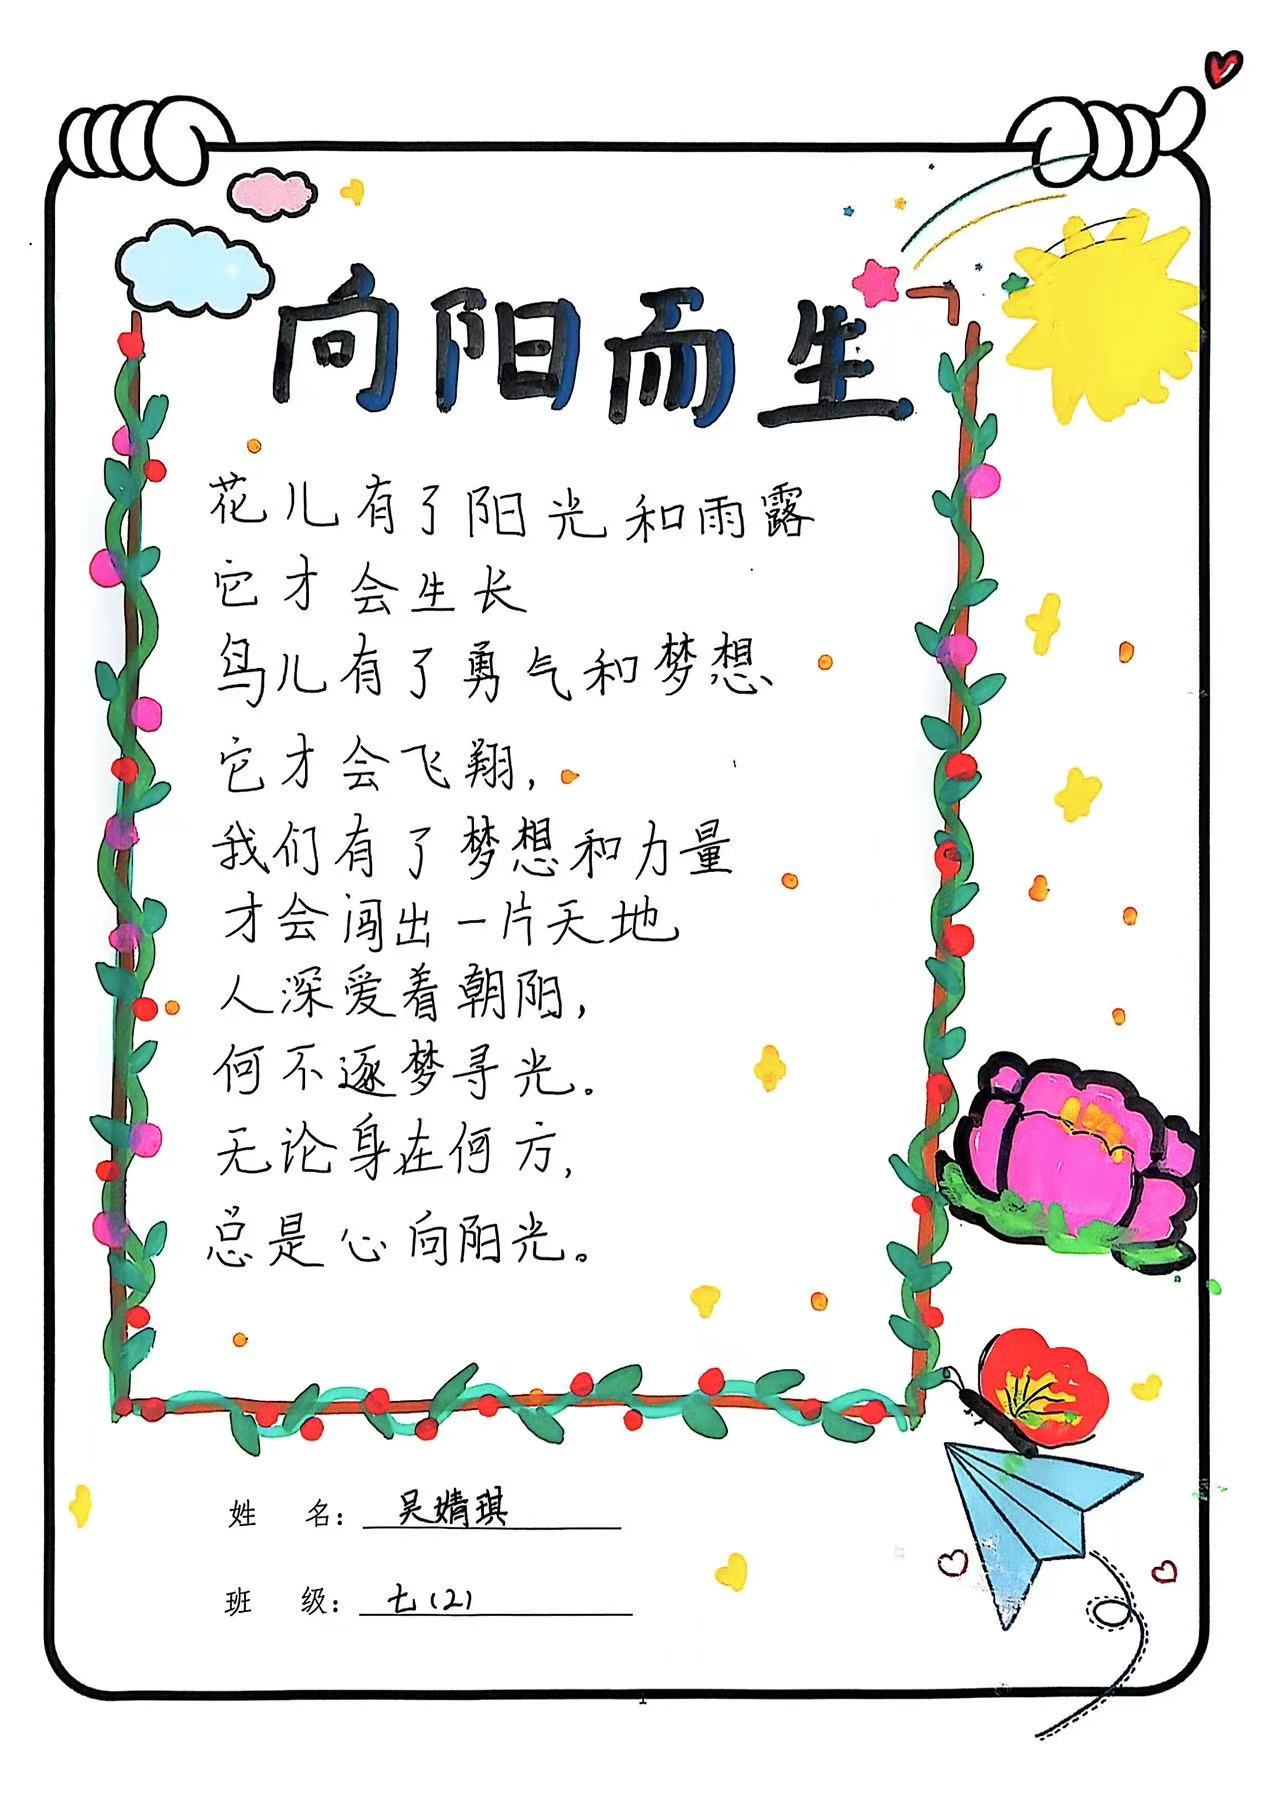 向阳而生
花儿有了阳光和雨露
它才会生长
鸟儿有了勇气和梦想、
它才会飞翔,
我们有了梦想和力量
才会闯出一片天地
人深爱着朝阳,
何不逐梦寻光。
无论身在何方,
总是心向阳光。
姓 名: 吴婧琪
班 级: 七(2)
1